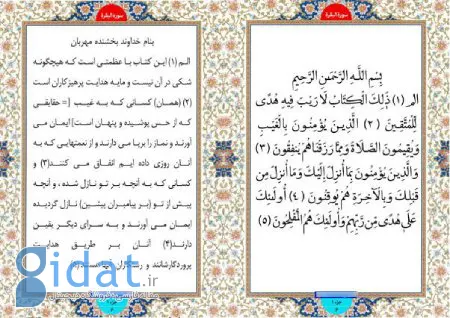 سورة البقرة
بِسْمِ اللَّهِ الرَّحْمَنِ الرَّحِيمِ
الم (۱) ذَلِكَ الْكِتَابُ لَا رَيْبَ فِيهِ هُدًى
لِّلْمُتَّقِينَ (۲) الَّذِينَ يُؤْمِنُونَ بِالْغَيْبِ
وَيُقِيمُونَ الصَّلَاةَ وَمِمَّا رَزَقْنَاهُمْ يُنفِقُونَ (۳)
وَالَّذِينَ يُؤْمِنُونَ بِمَا أُنزِلَ إِلَيْكَ وَمَا أُنزِلَ مِن
قَبْلِكَ وَبِالْآخِرَةِ هُمْ يُوقِنُونَ (۴) أُولَئِكَ
عَلَى هُدًى مِّن رَّبِّهِمْ وَأُولَئِكَ هُمُ الْمُفْلِحُونَ (۵)
سورة البقرة
بنام خداوند بخشنده مهربان
الم (۱) این کتاب با عظمتی است که هیچگونه
شکی در آن نیست و مایه هدایت پرهیزکاران است
(۲) (همان) کسانی که به غیب [= حقایقی
که از حس پوشیده و پنهان است] ایمان می
آورند و نماز را برپا می دارند و از نعمتهایی که به
آنان روزی داده ایم انفاق می کنند(۳) و
کسانی که به آنچه بر تو نازل شده، و آنچه
پیش از تو (بر پیامبران پیشین) نازل گردیده
ایمان می آورند و به سرای دیگر یقین
دارند(۴) آنان بر طریق هدایت
پروردگارشانند و
gidat.ir